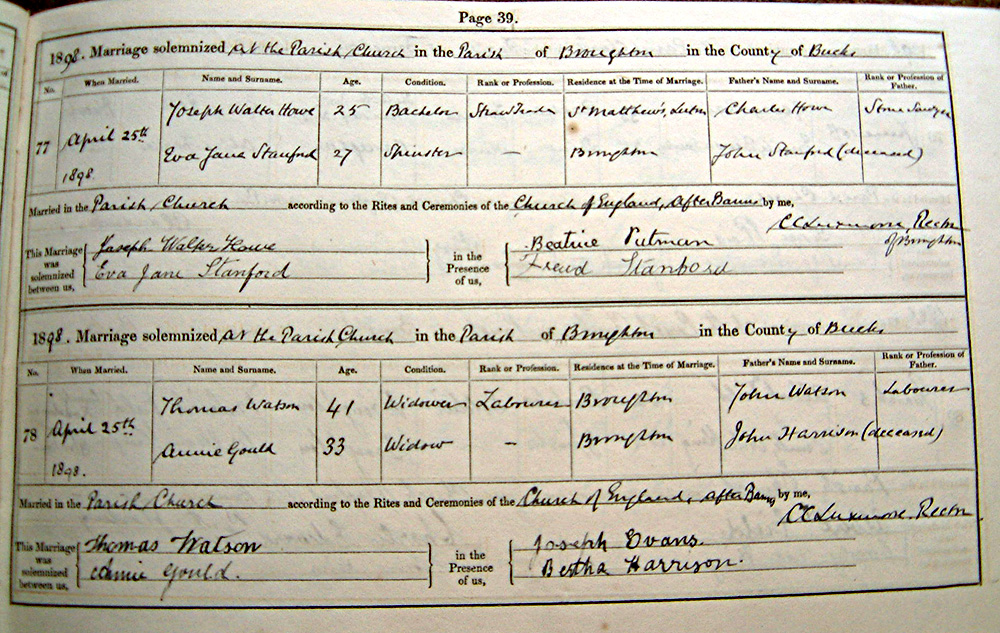 Page 39.
1898. Marriage solemnized at the Parish Church in the Parish of Broughton in the County of Bucks
No. When Married. Name and Surname. Age. Condition. Rank or Profession. Residence at the Time of Marriage. Father's Name and Surname. Rank or Profession of Father.
77 April 25th 1898. Joseph Walter Howe 25 Bachelor St Matthew's, Luton Charles Howe Stone Sawyer
Eva Jane Stanford 27 Spinster - Broughton John Stanford (deceased)
Married in the Parish Church according to the Rites and Ceremonies of the Church of England, After Banns by me,
C C Luxmoore, Rector of Broughton
This Marriage was solemnized between us, Joseph Walter Howe in the Presence of us, Beatrice Putman
Eva Jane Stanford Stanford
1898. Marriage solemnized at the Parish Church in the Parish of Broughton in the County of Bucks
No. When Married. Name and Surname. Age. Condition. Rank or Profession. Residence at the Time of Marriage. Father's Name and Surname. Rank or Profession of Father.
78 April 25th 1898. Thomas Watson 41 Widower Labourer Broughton John Watson Labourer
Annie Gould 33 Widow - Broughton John Harrison (deceased)
Married in the Parish Church according to the Rites and Ceremonies of the Church of England, After Banns by me,
C C Luxmoore, Rector
This Marriage was solemnized between us, Thomas Watson in the Presence of us, Joseph Evans.
Annie Gould. Bertha Harrison.